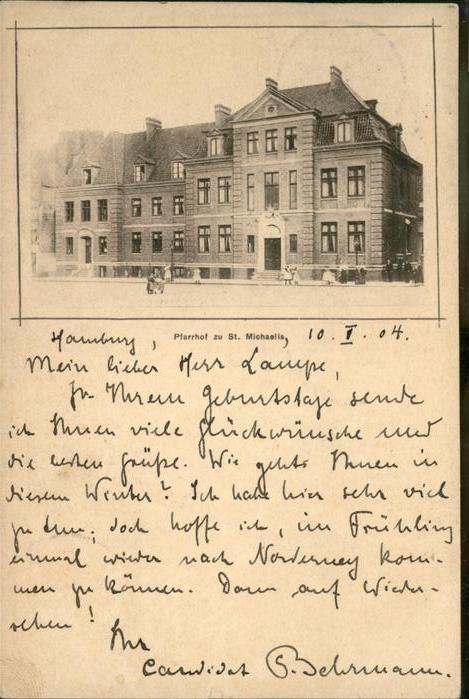 Pfarrhof zu St. Michaelis,
Hamburg, 10. I. 04.
Mein lieber Herr Lampe,
Zu Ihrem Geburtstage sende
ich Ihnen viele Glückwünsche und
die besten Grüße. Wie gehts Ihnen in
diesem Winter? Ich habe hier sehr viel
zu tun; doch hoffe ich, im Frühling
einmal wieder nach Norderney kom-
men zu können. Dann auf Wieder-
sehen!
Ihr
Candidat Behrmann.